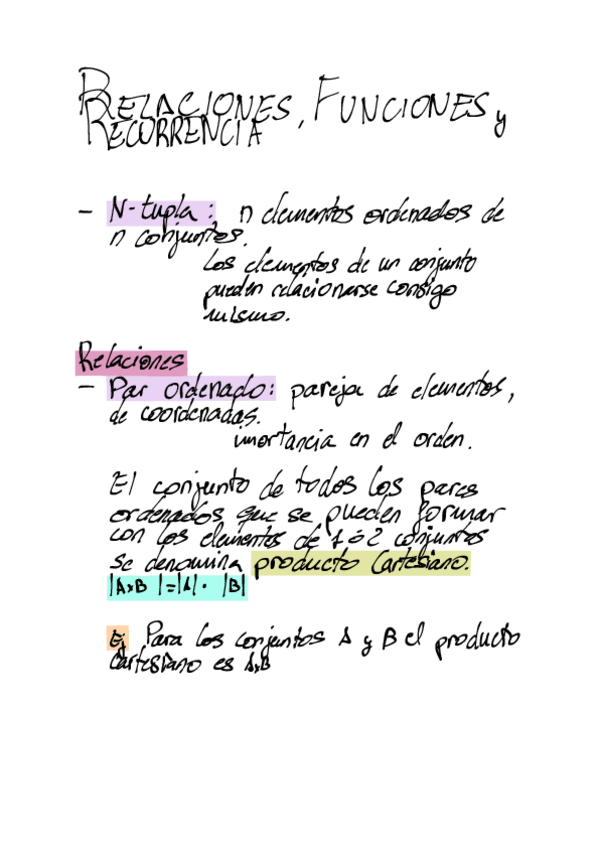 RELACIONES, FUNCIONES y
RECURRENCIA
- N-tupla: n elementos ordenados de
n conjuntos.
Los elementos de un conjunto
pueden relacionarse consigo
mismo.
Relaciones
- Par ordenado: pareja de elementos,
de coordenadas.
imortancia en el orden.
El conjunto de todos los pares
ordenados que se pueden formar
con los elementos de 1 ó 2 conjuntos
se denomina producto Cartesiano.
|AxB|=|A|·|B|
Ej Para los conjuntos A y B el producto
Cartesiano es AxB